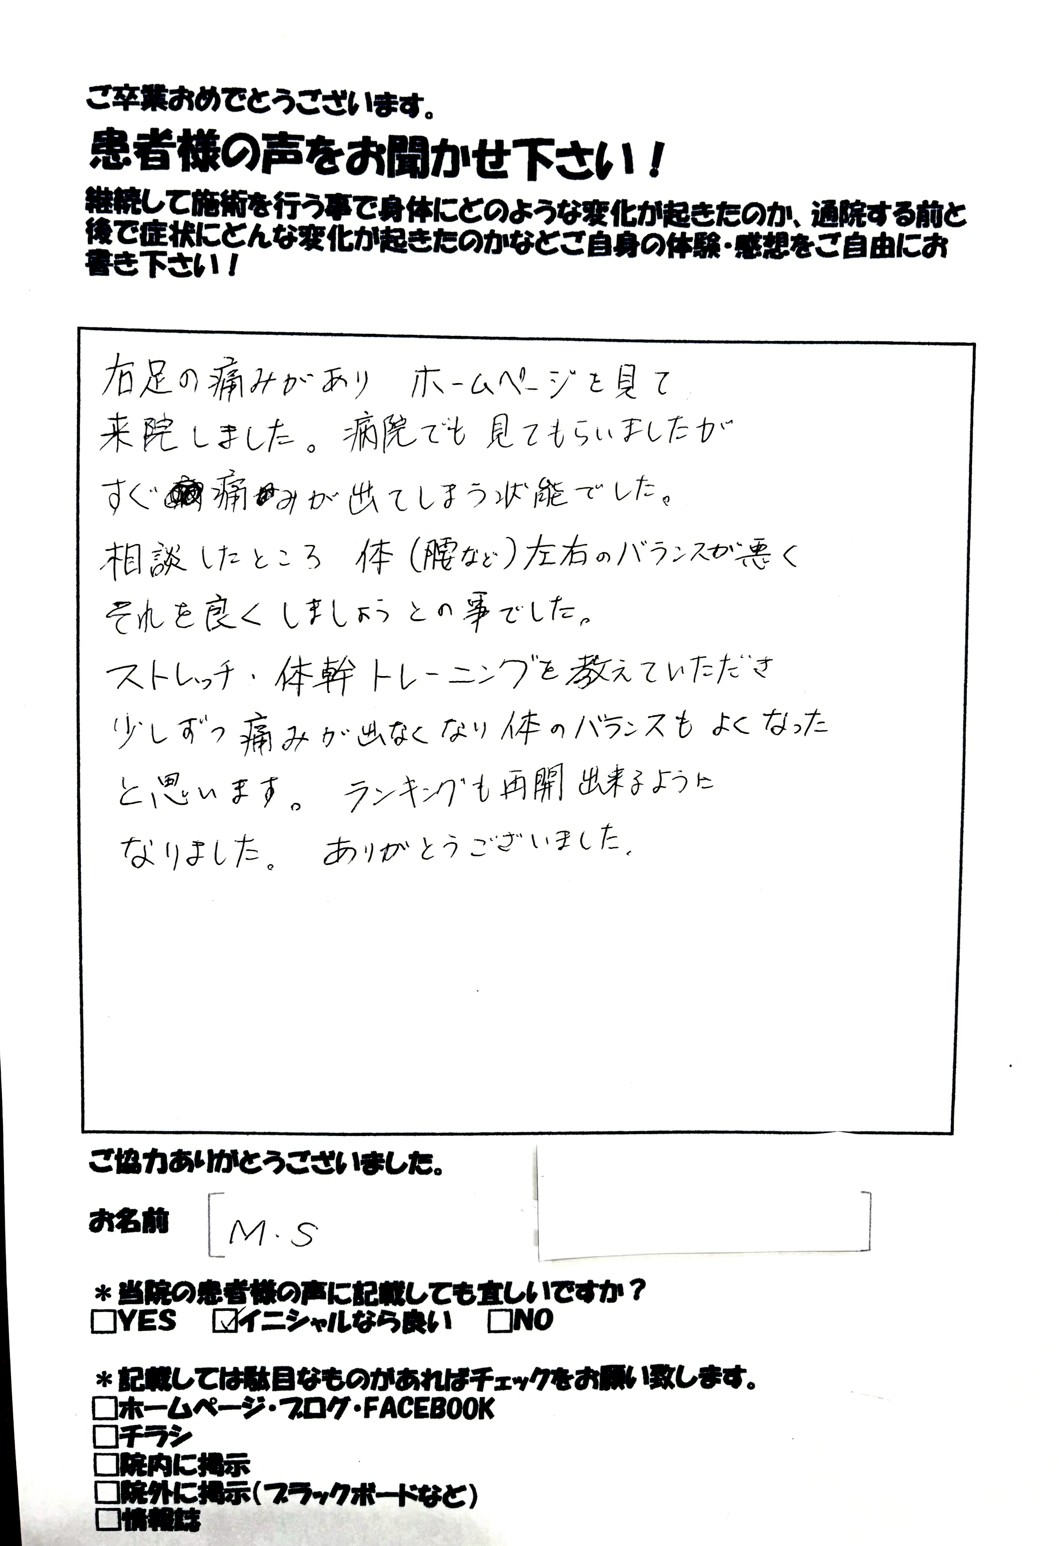 ご卒業おめでとうございます。
患者様の声をお聞かせ下さい！
継続して施術を行う事で身体にどのような変化が起きたのか、通院する前と
後で症状にどんな変化が起きたのかなどご自身の体験・感想をご自由にお
書き下さい！
右足の痛みがあり ホームページを見て
来院しました。病院でも見てもらいましたが
すぐ痛みが出てしまう状態でした。
相談したところ 体（腰など）左右のバランスが悪く
それを良くしましょうとの事でした。
ストレッチ・体幹トレーニングを教えていただき
少しずつ痛みが出なくなり体のバランスもよくなった
と思います。 ランキングも再開出来るように
なりました。 ありがとうございました。
ご協力ありがとうございました。
お名前 M.S
＊当院の患者様の声に記載しても宜しいですか？
□YES ☑イニシャルなら良い □NO
＊記載しては駄目なものがあればチェックをお願い致します。
□ホームページ・ブログ・FACEBOOK
□チラシ
□院内に掲示
□院外に掲示（ブラックボードなど）
□情報誌